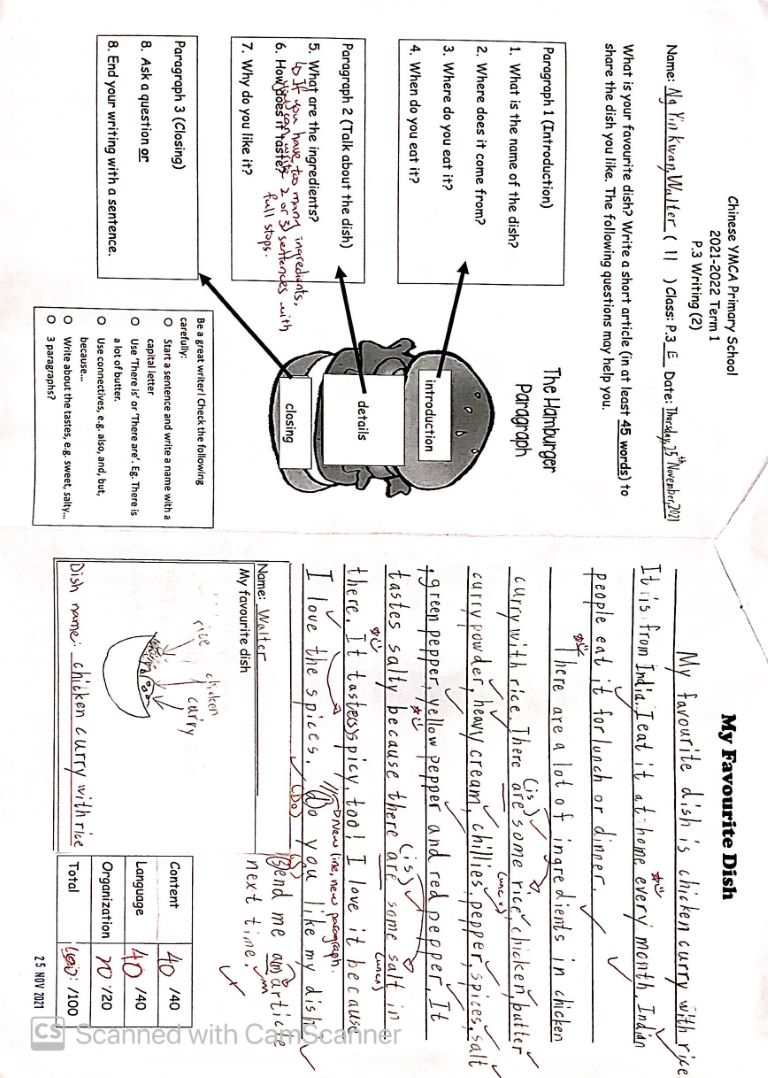 Chinese YMCA Primary School
2021-2022 Term 1
P.3 Writing (2)
Name: Ng Yin Kwan, Walter ( 11 ) Class: P.3 E Date: Thursday, 25th November, 2021
What is your favourite dish? Write a short article (in at least 45 words) to
share the dish you like. The following questions may help you.
Paragraph 1 (Introduction)
1. What is the name of the dish?
2. Where does it come from?
3. Where do you eat it?
4. When do you eat it?
Paragraph 2 (Talk about the dish)
5. What are the ingredients?
↳ If you have too many ingredients,
6. How does it taste?
you can write 2 or 3 sentences with
full stops.
7. Why do you like it?
Paragraph 3 (Closing)
8. Ask a question or
8. End your writing with a sentence.
The Hamburger
Paragraph
introduction
details
closing
Be a great writer! Check the following
carefully:
O Start a sentence and write a name with a
capital letter
O Use 'There is' or 'There are'. Eg. There is
a lot of butter.
O Use connectives, e.g. also, and, but,
because...
O Write about the tastes, e.g. sweet, salty...
O 3 paragraphs?
My Favourite Dish
My favourite dish is chicken curry with rice
It is from India. I eat it at home every month. Indian
people eat it for lunch or dinner.
There are a lot of ingredients in chicken
(is)
curry with rice. There are some rice, chicken, butter
(unc)
curry powder, heavy cream, chillies, pepper, spices, salt
, green pepper, yellow pepper and red pepper. It
(is)
tastes salty because there are some salt in
(unc)
there. It taste(s) spicy, too! I love it because
New line, new paragraph.
I love the spices. do you like my dish
(Do)
(S)
Send me an article
next time.
Name: Walter
My favourite dish
rice
chicken
curry
Dish name: chicken curry with rice
Content 40 /40
Language 40 /40
Organization 20 /20
Total 100 /100
25 NOV 2021
CS Scanned with CamScanner